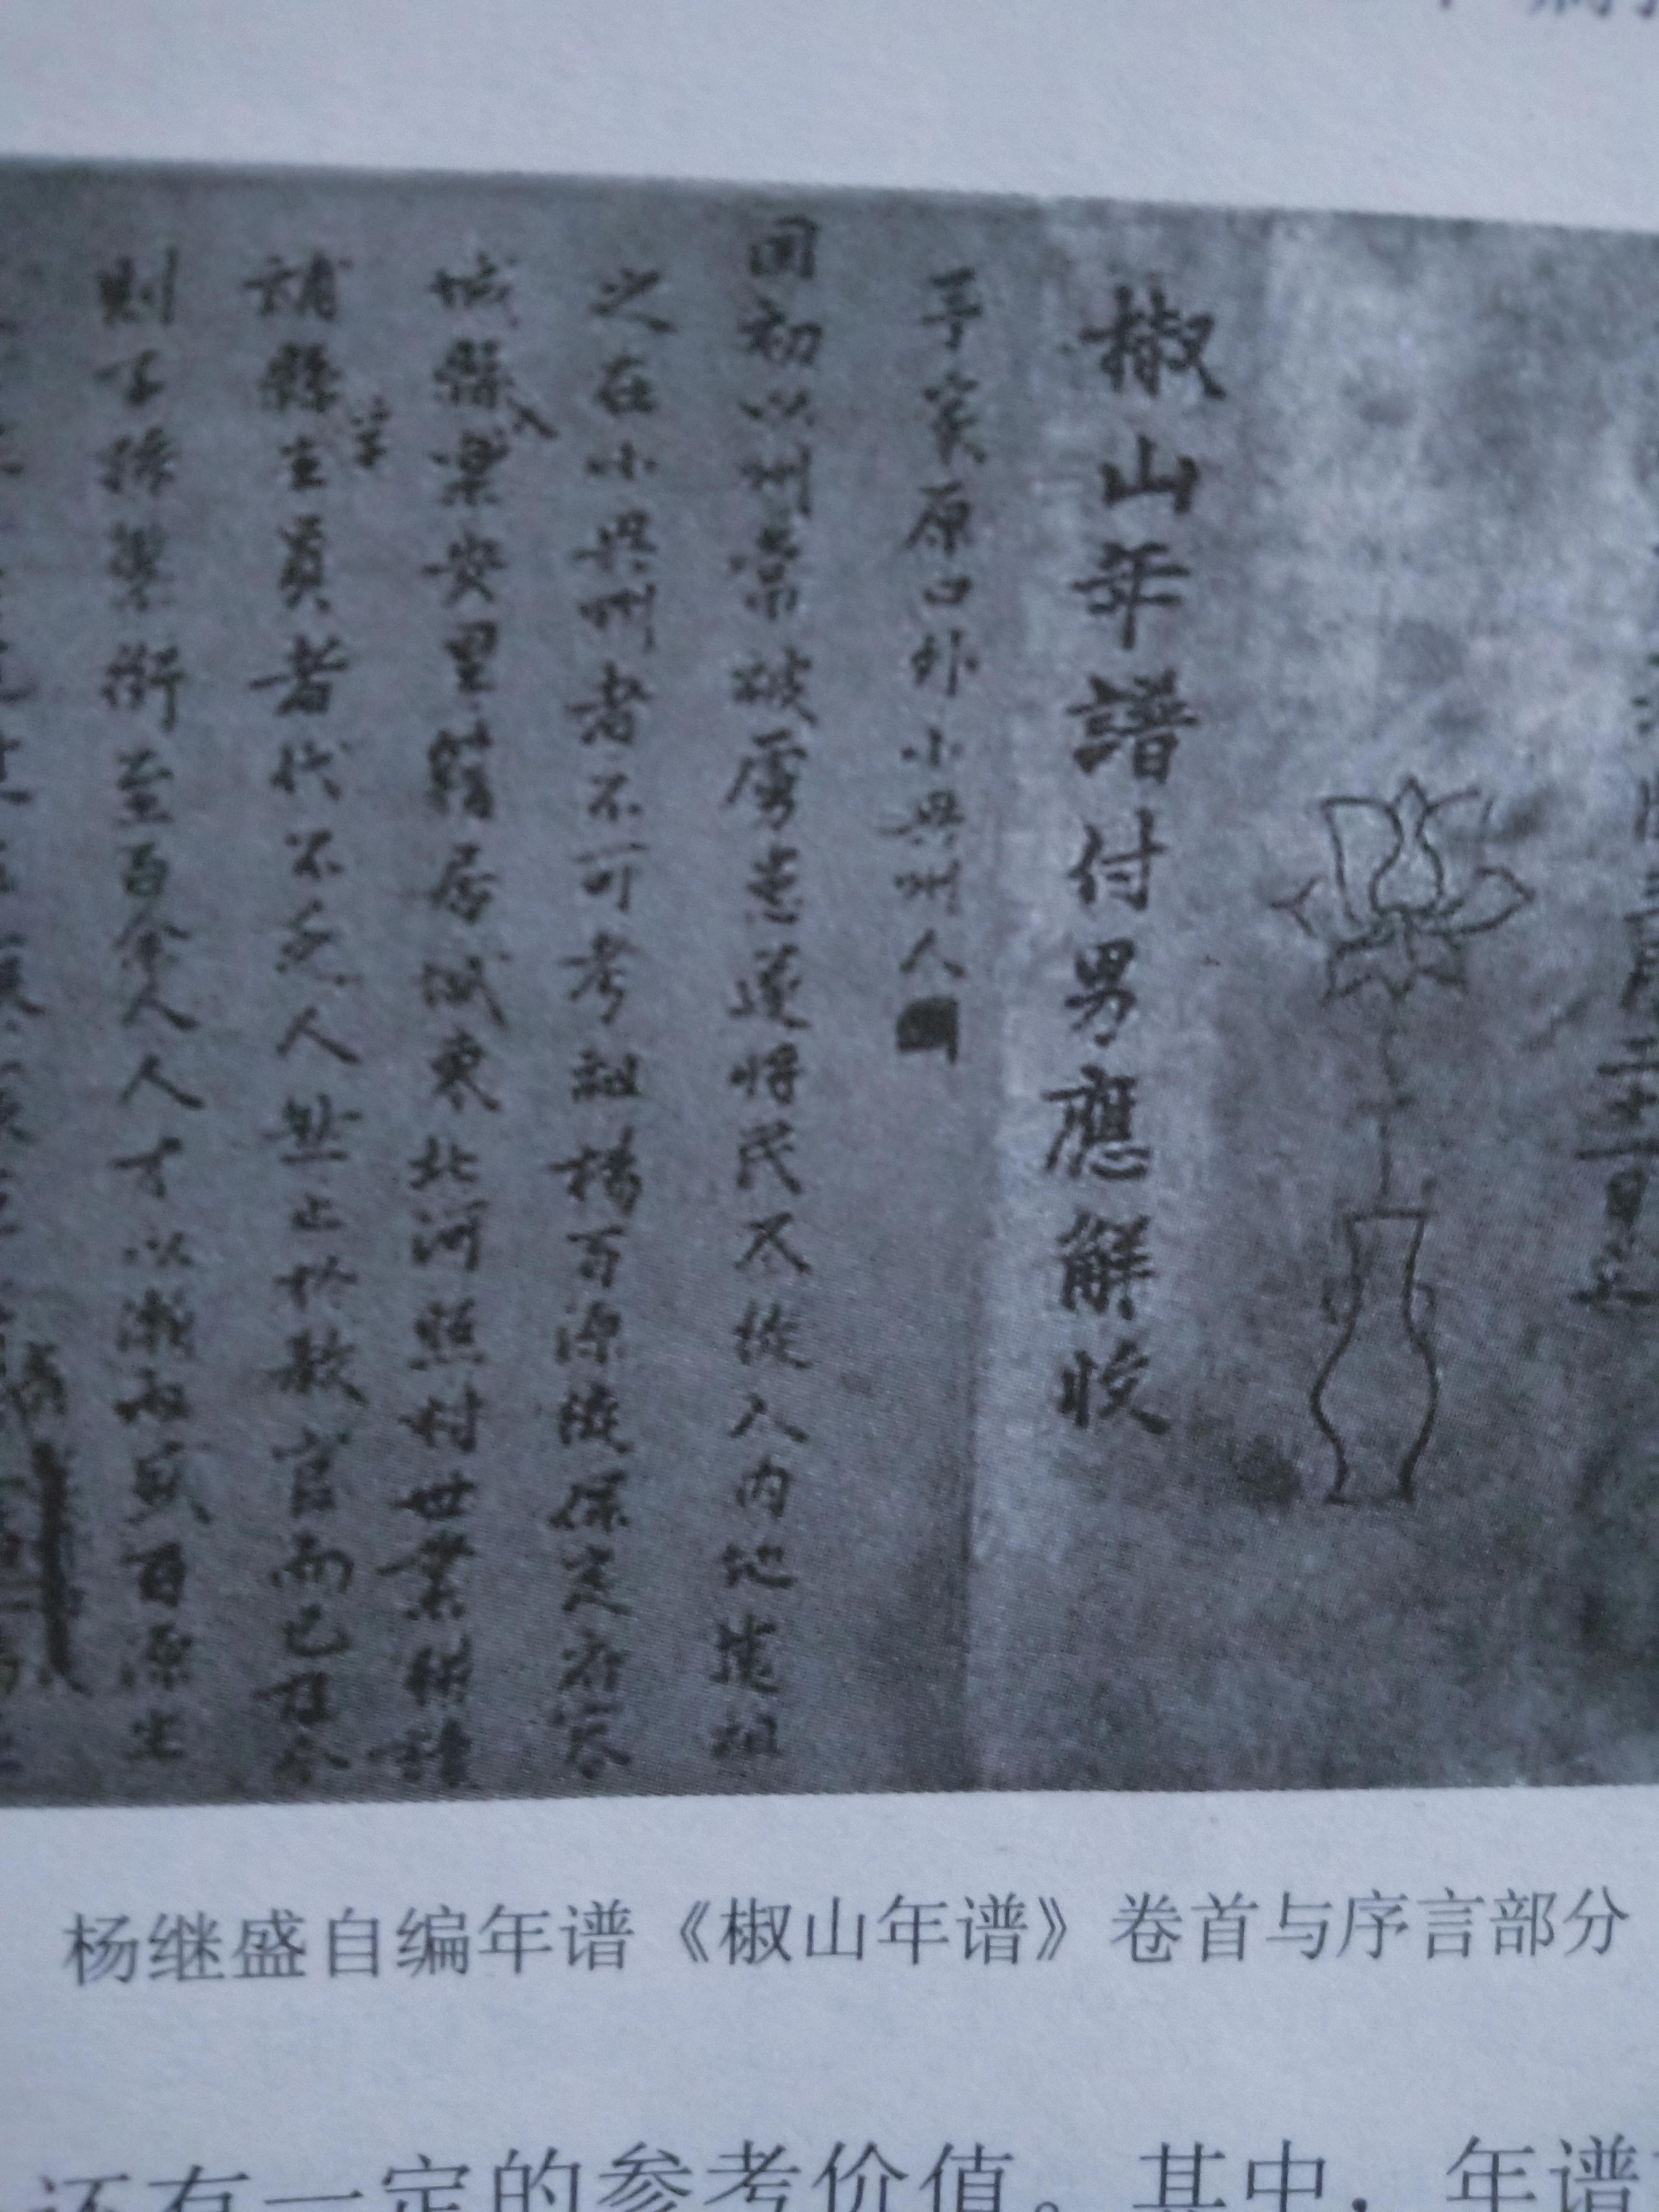 椒山年譜付男應觧收
予家原口外小興州人
國初以州常被虜患遂將民尽徙入内地遠祖
之在小興州者不可考祖楊百源徙保定府容
城縣樂安里籍居城東北河照村世業耕讀
補縣學生員者代不乏人然止於教官而已且今
則子孫繁衍至百余人人才以漸而盛百源生
杨继盛自编年谱《椒山年谱》卷首与序言部分
还有一定的参考价值。其中，年谱